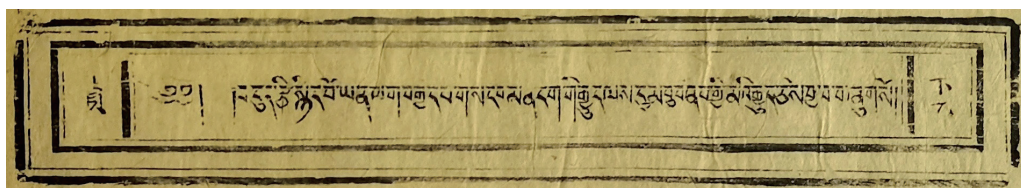 ༄༅། །བདུད་རྩི་སྙིང་པོ་ཡན་ལག་བརྒྱད་པ་གསང་བ་མན་ངག་གི་རྒྱུད་ལས་དུམ་བུ་བཞི་པ་ཕྱི་མའི་རྒྱུད་ཅེས་བྱ་བ་བཞུགས་སོ།།